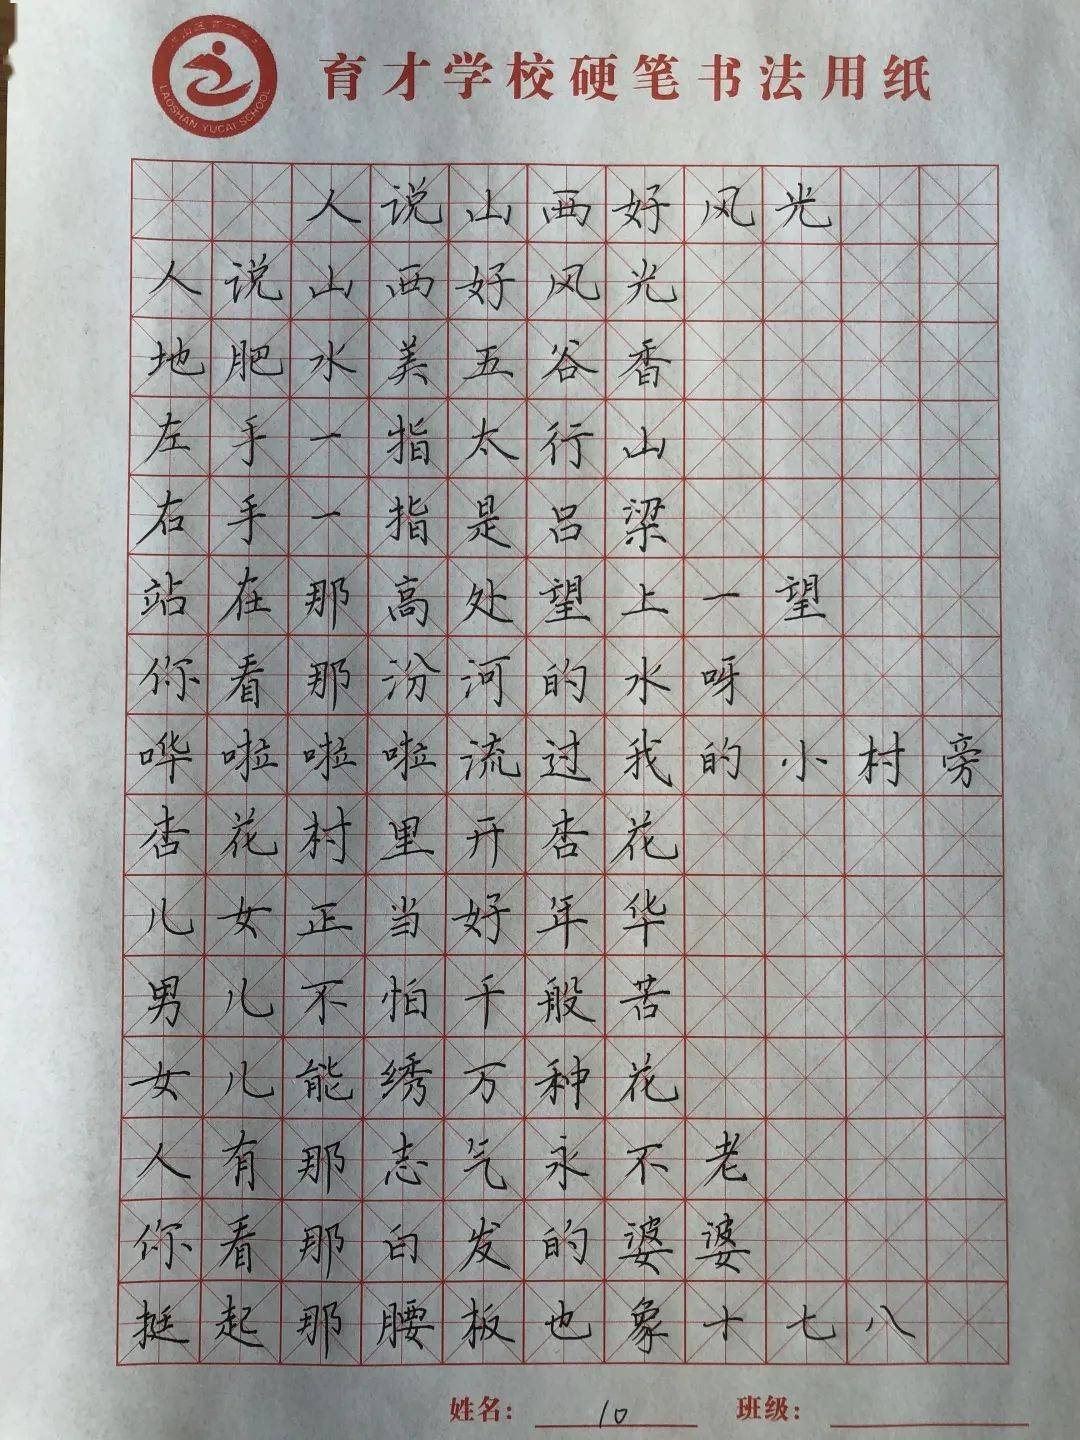 LAOSHAN YUCAI SCHOOL
育才学校硬笔书法用纸
人说山西好风光
人说山西好风光
地肥水美五谷香
左手一指太行山
右手一指是吕梁
站在那高处望上一望
你看那汾河的水呀
哗啦啦啦流过我的小村旁
杏花村里开杏花
儿女正当好年华
男儿不怕千般苦
女儿能绣万种花
人有那志气永不老
你看那白发的婆婆
挺起那腰板也象十七八
姓名： 10 班级：